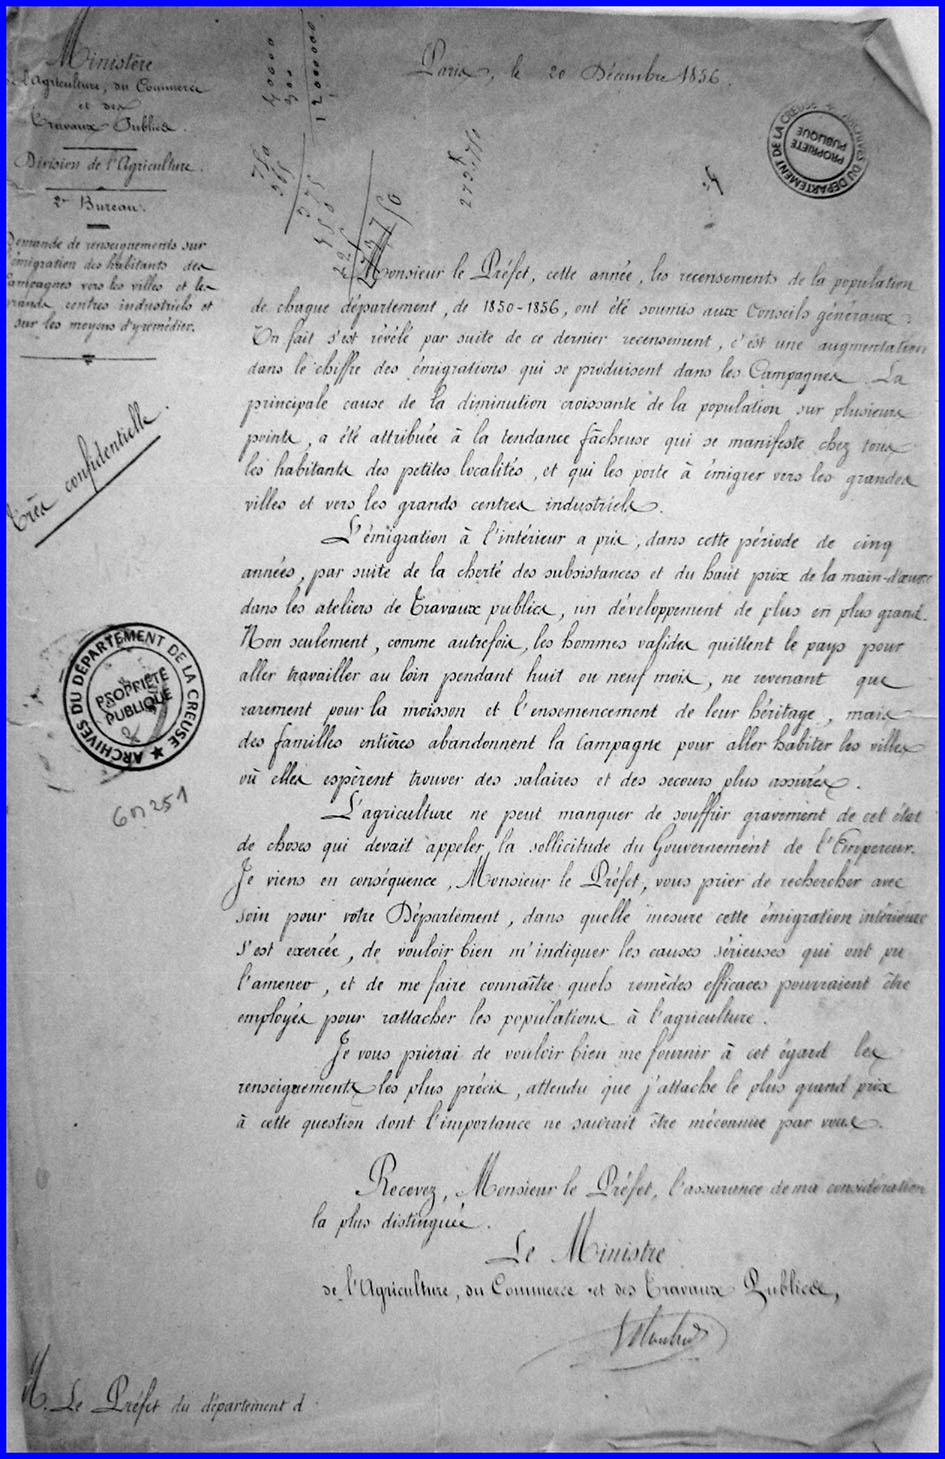 Ministère
de l'Agriculture, du Commerce
et des
Travaux Publics.
Division de l'Agriculture.
2e Bureau.
Demande de renseignements sur
l'émigration des habitants des
Campagnes vers les villes et les
grands centres industriels et
sur les moyens d'y remédier.
Très confidentielle.
Paris, le 20 Décembre 1856.
40000
300
12000000
750
375
273.750
ARCHIVES DU DÉPARTEMENT DE LA CREUSE
PROPRIÉTÉ
PUBLIQUE
Monsieur le Préfet, cette année, les recensements de la population
de chaque département, de 1850-1856, ont été soumis aux Conseils généraux.
Un fait s'est révélé par suite de ce dernier recensement, c'est une augmentation
dans le chiffre des émigrations qui se produisent dans les Campagnes. La
principale cause de la diminution croissante de la population sur plusieurs
points, a été attribuée à la tendance fâcheuse qui se manifeste chez tous
les habitants des petites localités, et qui les porte à émigrer vers les grandes
villes et vers les grands centres industriels.
L'émigration à l'intérieur a pris, dans cette période de cinq
années, par suite de la cherté des subsistances et du haut prix de la main-d'œuvre
dans les ateliers de Travaux publics, un développement de plus en plus grand.
Non seulement, comme autrefois, les hommes valides quittent le pays pour
aller travailler au loin pendant huit ou neuf mois, ne revenant que
rarement pour la moisson et l'ensemencement de leur héritage, mais
des familles entières abandonnent la Campagne pour aller habiter les villes
où elles espèrent trouver des salaires et des secours plus assurés.
L'agriculture ne peut manquer de souffrir gravement de cet état
de choses qui devait appeler la sollicitude du Gouvernement de l'Empereur.
Je viens en conséquence, Monsieur le Préfet, vous prier de rechercher avec
soin pour votre Département, dans quelle mesure cette émigration intérieure
s'est exercée, de vouloir bien m'indiquer les causes sérieuses qui ont pu
l'amener, et de me faire connaître quels remèdes efficaces pourraient être
employés pour rattacher les populations à l'agriculture.
Je vous prierai de vouloir bien me fournir à cet égard les
renseignements les plus précis, attendu que j'attache le plus grand prix
à cette question dont l'importance ne saurait être méconnue par vous.
Recevez, Monsieur le Préfet, l'assurance de ma considération
la plus distinguée.
Le Ministre
de l'Agriculture, du Commerce et des Travaux Publics,
ARCHIVES DU DÉPARTEMENT DE LA CREUSE
PROPRIÉTÉ
PUBLIQUE
6M251
M. Le Préfet du département d